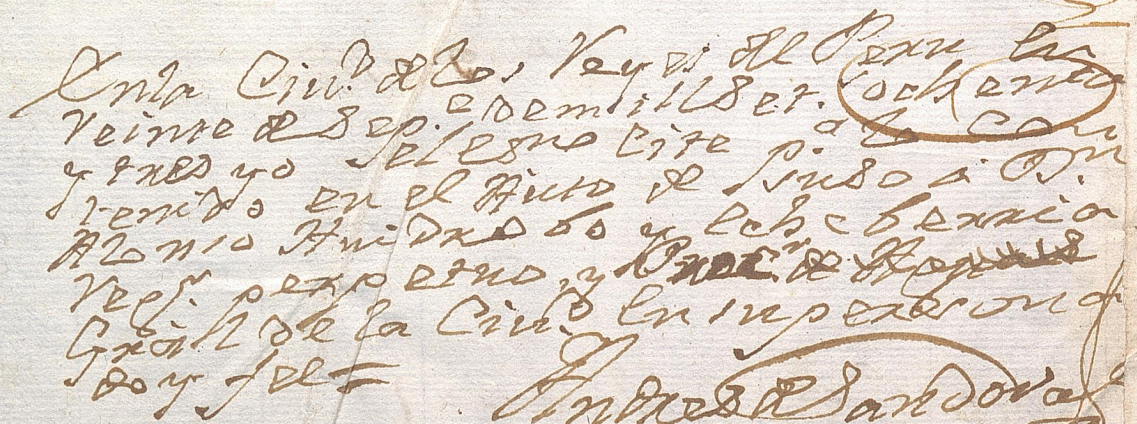 Enla Ciu.d de los Reyes del Peru en
veinte de Sep.e de mill Set. ochenta
y tres yo el esno cite p.a lo con
tenido en el Auto de su a Dn.
Alonso Huidrobo y Echeberria
Reg.r perpetuo, y Proc.r de
Gràll de la Ciu.d en su persona
do y fee =
Andres de Sandoval